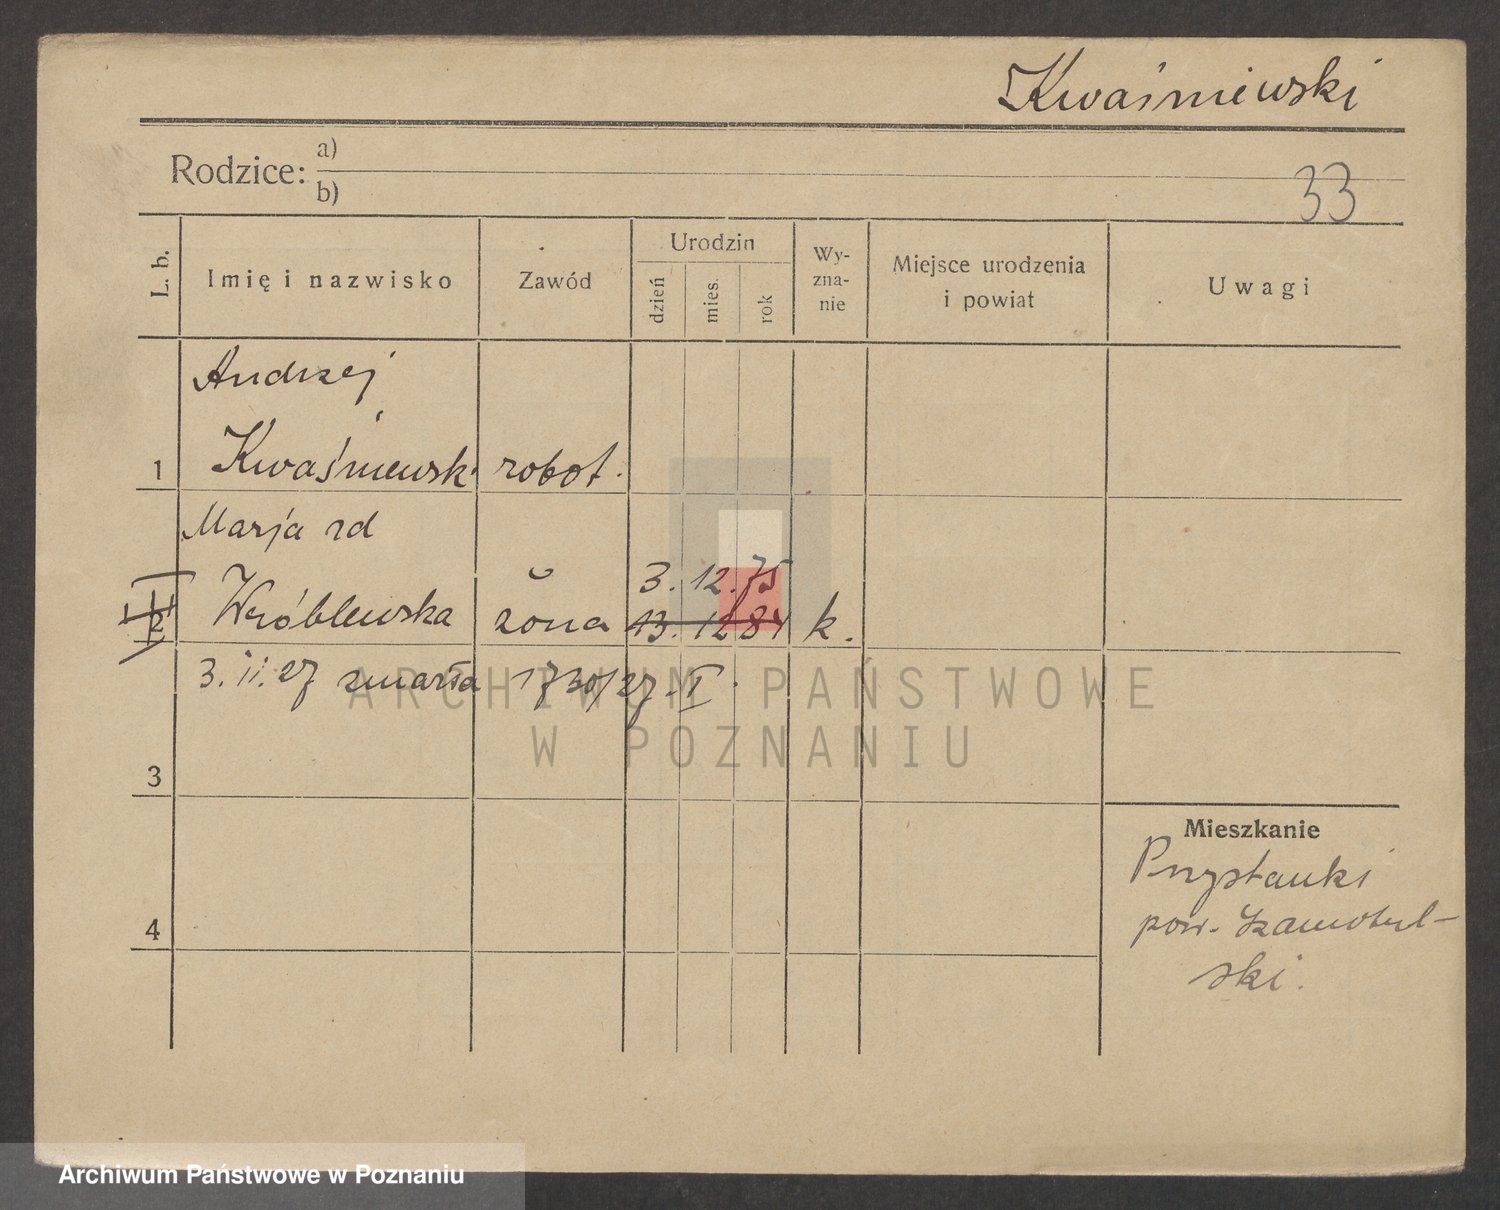 Kwaśniewski
Rodzice: a)
b)
33
L. b.
Imię i nazwisko
Zawód
Urodzin
dzień
mies.
rok
Wy-
zna-
nie
Miejsce urodzenia
i powiat
Uwagi
Andrzej
1 Kwaśniewski robot.
Marja rd
3. 12. 75
2 Wróblewska żona 13. 12 84 k.
3. 11. 27 zmarła 1730/27. I.
3
Mieszkanie
Przystanki
pow. szamotul-
ski.
4
ARCHIWUM PAŃSTWOWE
W POZNANIU
Archiwum Państwowe w Poznaniu